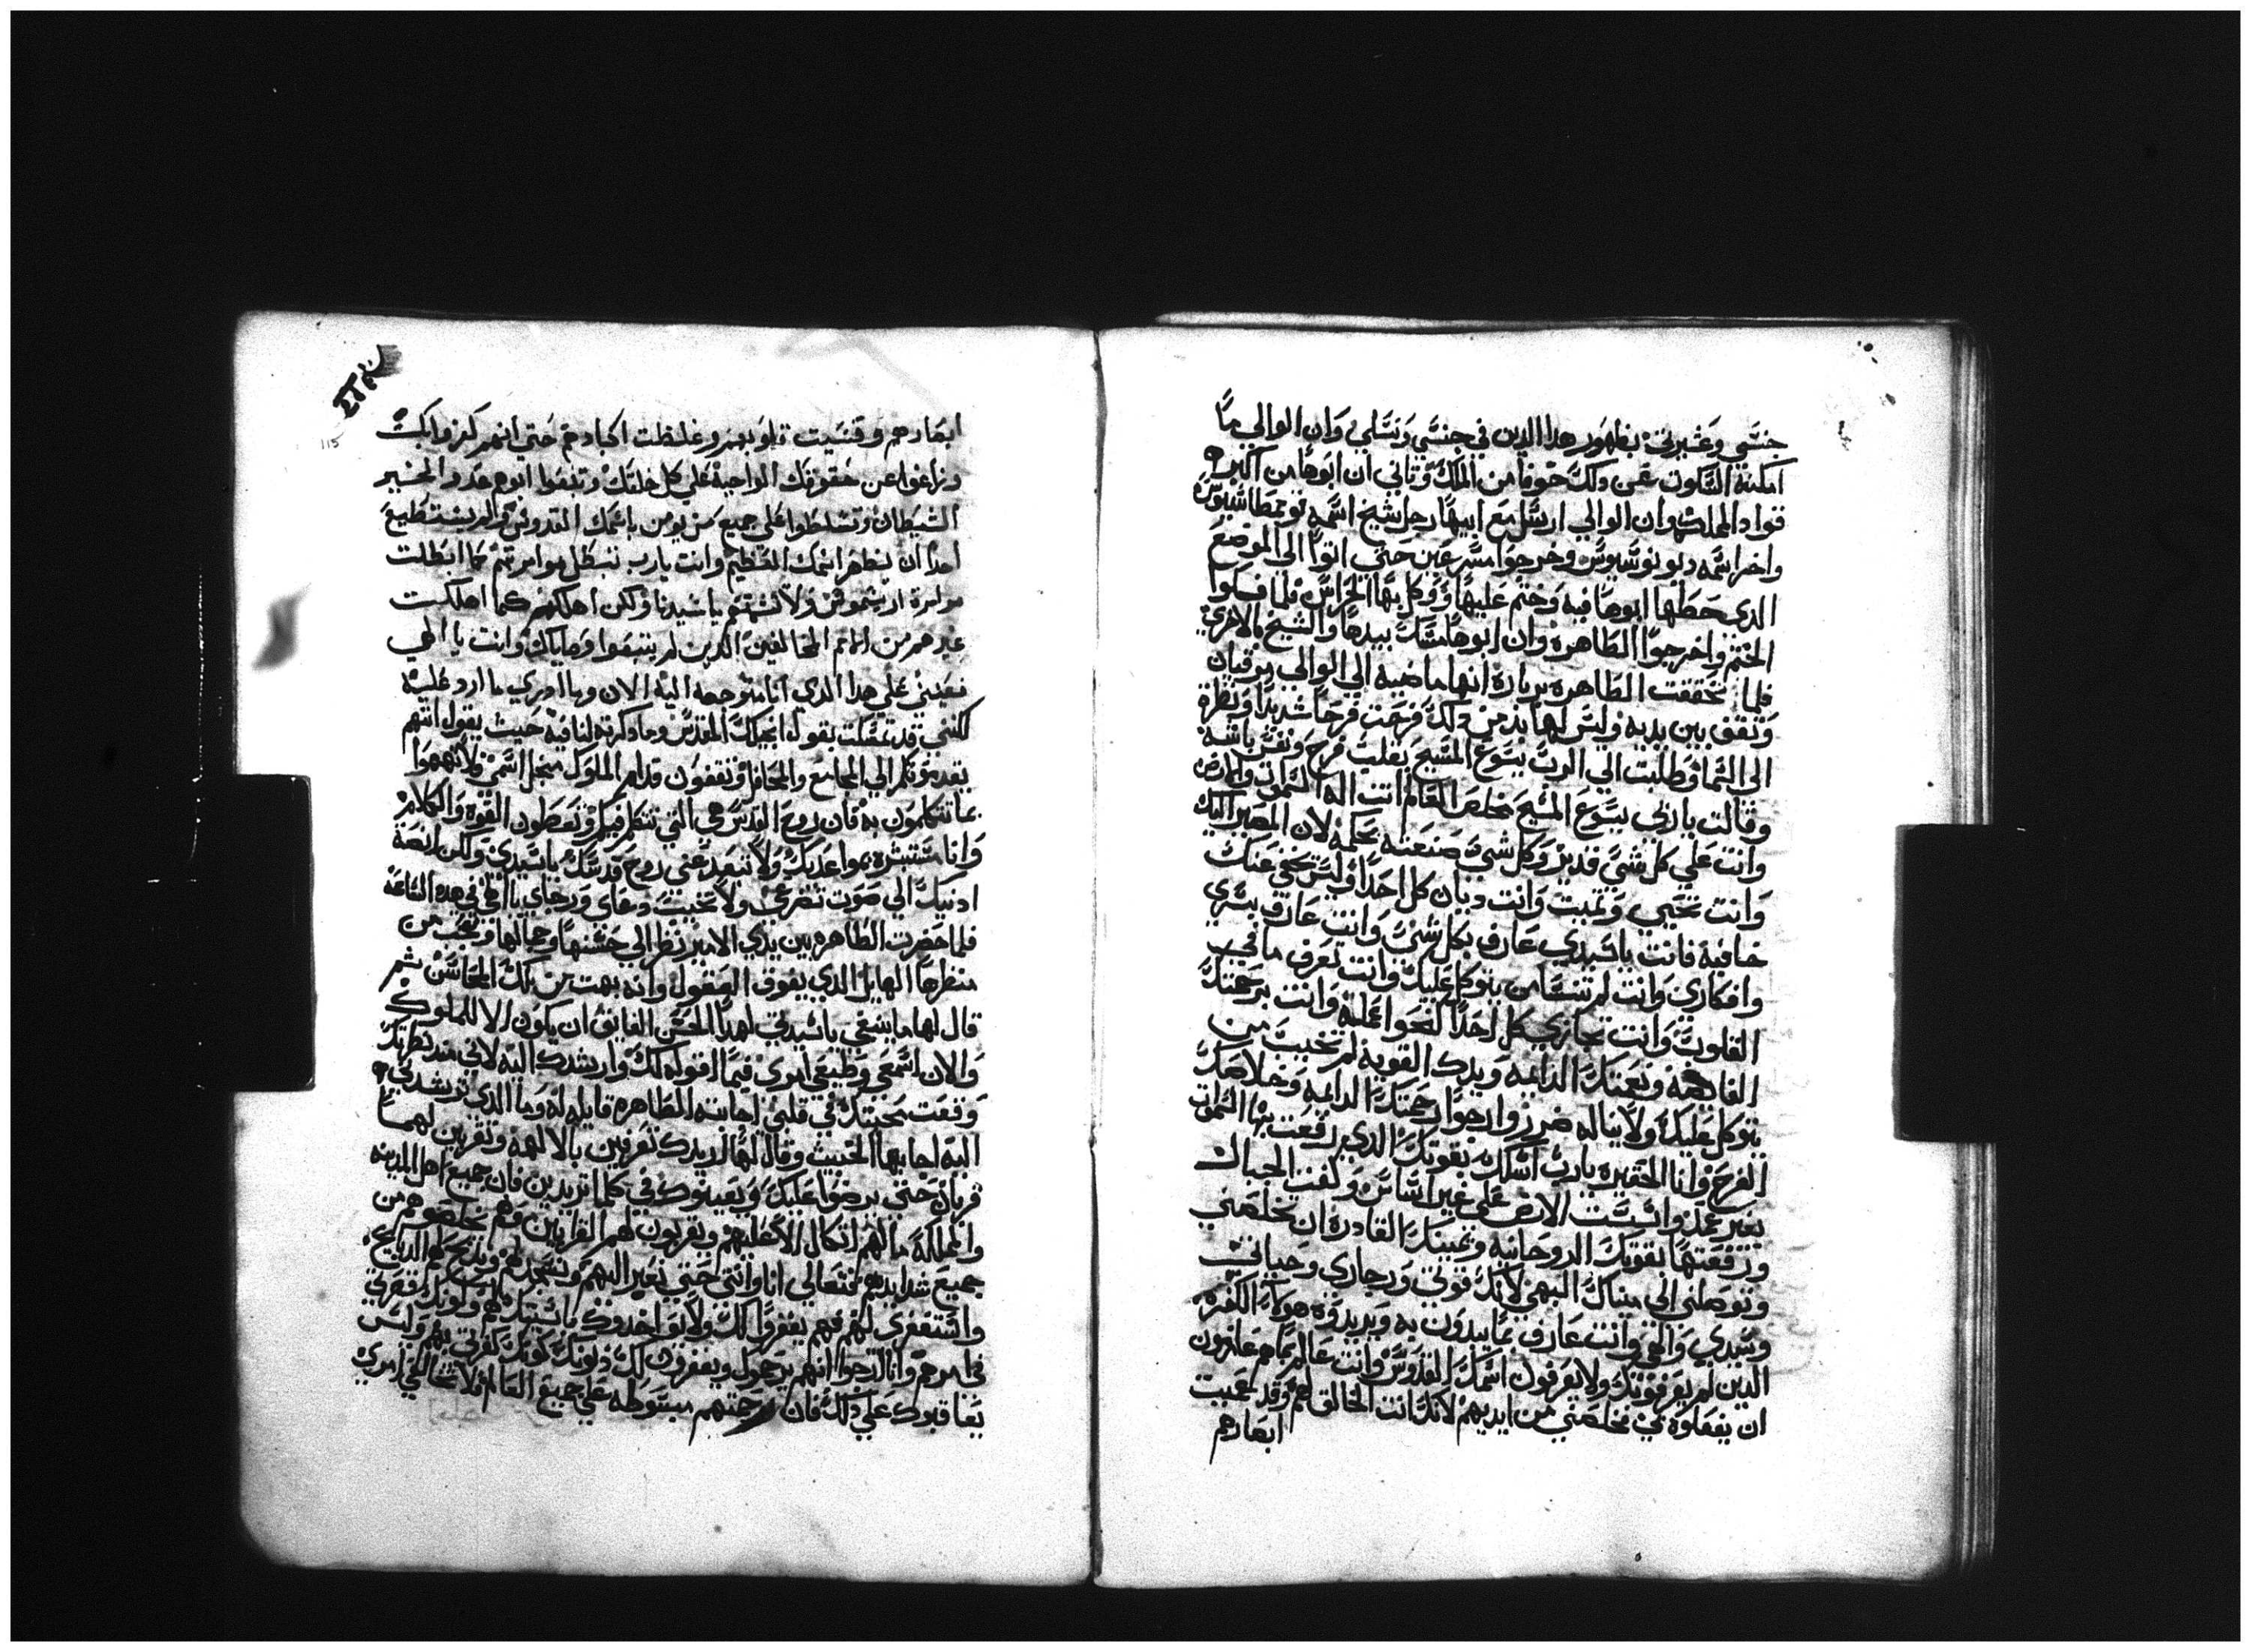 جنسي وعشيرتي بظهور هدا الدين في جنسي ونسلي وان الوالي ما
امكنه السكوت عن دلك خوفا من الملك وتاني ان ابوها من اكبر
قواد المملكه وان الوالي ارسل مع ابيها رجل شيخ اسمه
واخر اسمه ديونوسيوس وخرجوا مسرعين حتي اتوا الي الموضع
الدي حطها ابوها فيه وختم عليها ووكل بها الحراس فلما فكوا
الختم واخرجوا الطاهره وان ابوها مسك بيدها والشيخ بالاخري
فلما تحققت الطاهره بربارة انها ماضيه الي الوالي
وتقف بين يديه وليس لها بد من دلك فرحت فرحا شديدا ونظرة
الي السما وطلبت الي الرب يسوع المسيح بقلب فرح ونفس
وقالت ياربي يسوع المسيح مخلص العالم انت اله السموات والارض
وانت علي كل شي قدير وكل شي صنعته بحكمه لان المصير اليك
وانت تحيي وتميت وانت ديان كل احدا وليس تخفي عنك
خافية فانت ياسيدي عارف بكل شي وانت عارف بسري
وافكاري وانت لم تنسا من يتوكل عليك وانت تعرف ما في
القلوب وانت تجازي كل احدا كنحوا عمله وانت برحمتك
ونعمتك الدايمه ويدك القويه لم تخيب من
يتوكل عليك ولا يناله ضرر وارجوا رحمتك الدايمه وخلاصك
الفرح وانا الحقيره يارب اسلك بقوتك الدي رفعت بها السموات
بغير عمد واتبتت الارض علي غير اساس وكفت الجبال
ورفعتها بقوتك الروحانيه ويمينك القادره ان تخلصني
وتوصلني الي ميناك البهي لانك قوتي ورجاي وحياتي
وسيدي والهي وانت عارف بما يبدون به ويريدوه هولاء الكفره
الدين لم يعرفونك ولا يعرفون اسمك القدوس وانت عالم بماهم عازمون
ان يفعلوه بي خلصني من ايديهم لانك انت الخالق لهم وقد عميت
ابصارهم
115
ابصارهم وقسيت قلوبهم وغلظت اكبادهم حتي انهم كفروا بك
وزاغوا عن حقوقك الواجبه علي كل خليقتك وتبعوا ابوهم عدو الخير
الشيطان وتسلطوا علي جميع من يومن باسمك القدوس ولم يستطيع
احدا ان يظهر اسمك العظيم وانت يارب تبطل موامرتهم كما ابطلت
موامرة ولا تتمهم ياسيدنا ولكن اهلكهم كما اهلكت
غيرهم من الامم المخالفين الدين لم يتبعوا وصاياك وانت يا الهي
تعيني علي هدا الدي انا متوجهه اليه الان وما ادري ما ارد عليه
لكنني قد تمسكت بقول انجيلك المقدس وما دكرته لنا فيه حيث يقول انهم
يقدمونكم الي المجامع والمحافل وتقفون قدام الملوك من اجل اسمي ولا تهتموا
بما تتكلمون به فان روح القدس هي التي تتكلم فيكم وتعطون القوه والكلام
وانا مستبشره بمواعدك ولا تبعد عني روح قدسك ياسيدي ولكن انصة
ادنيك الي صوت تضرعي ولا تخيب دعاي ورجاي يا الهي في هده الساعه
فلما حضرت الطاهره بين يدي الامير نظر الي حسنها وجمالها وتعجب من
منظرها الهايل الدي يفوق العقول وانه بهت من تلك المحاسن ثم
قال لها ما ينبغي ياسيدتي لهدا الحسن الفايق ان يكون الا للملوك
والان اسمعي وطيعي امري فيما اقوله لك وارشدك اليه لاني مند نظرتك
وقعت محبتك في قلبي اجابته الطاهره قايله له وما الدي ترشدني
اليه اجابها الخبيث وقال لها اريدك تعرفين بالالهه وتقربين لهما
قربان حتي يرضوا عليك ويعينوك في كلما تريدين فان جميع اهل المدينه
والمملكة مالهم اتكال الا عليهم ويقربون لهم القرابين وهم يخلصوهم من
جميع شدايدهم فتعالي انا وانتي حتي نعبر اليهم ونسجد لهم ونذبح لهم الدبايح
واستغفري لهم فهم يغفروا لك ولا يواخدوك
وانا ارجوا انهم يرحموك ويغفرون لك دنوبك كونك كفرتي بهم وليس
يعاقبوك علي دلك فان رحمتهم مبسوطه علي جميع العالم فلا تخالفي امري